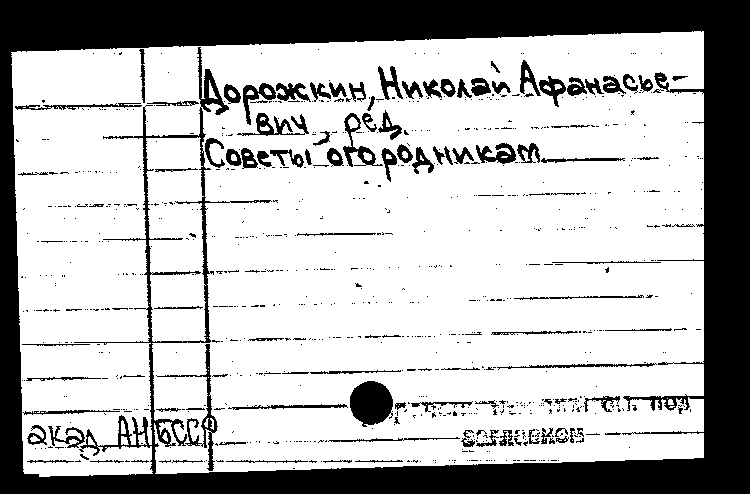 Дорожкин, Николай Афанасье-
вич, ред.
Советы огородникам.
см. под
заглавием
акад. АН БССР